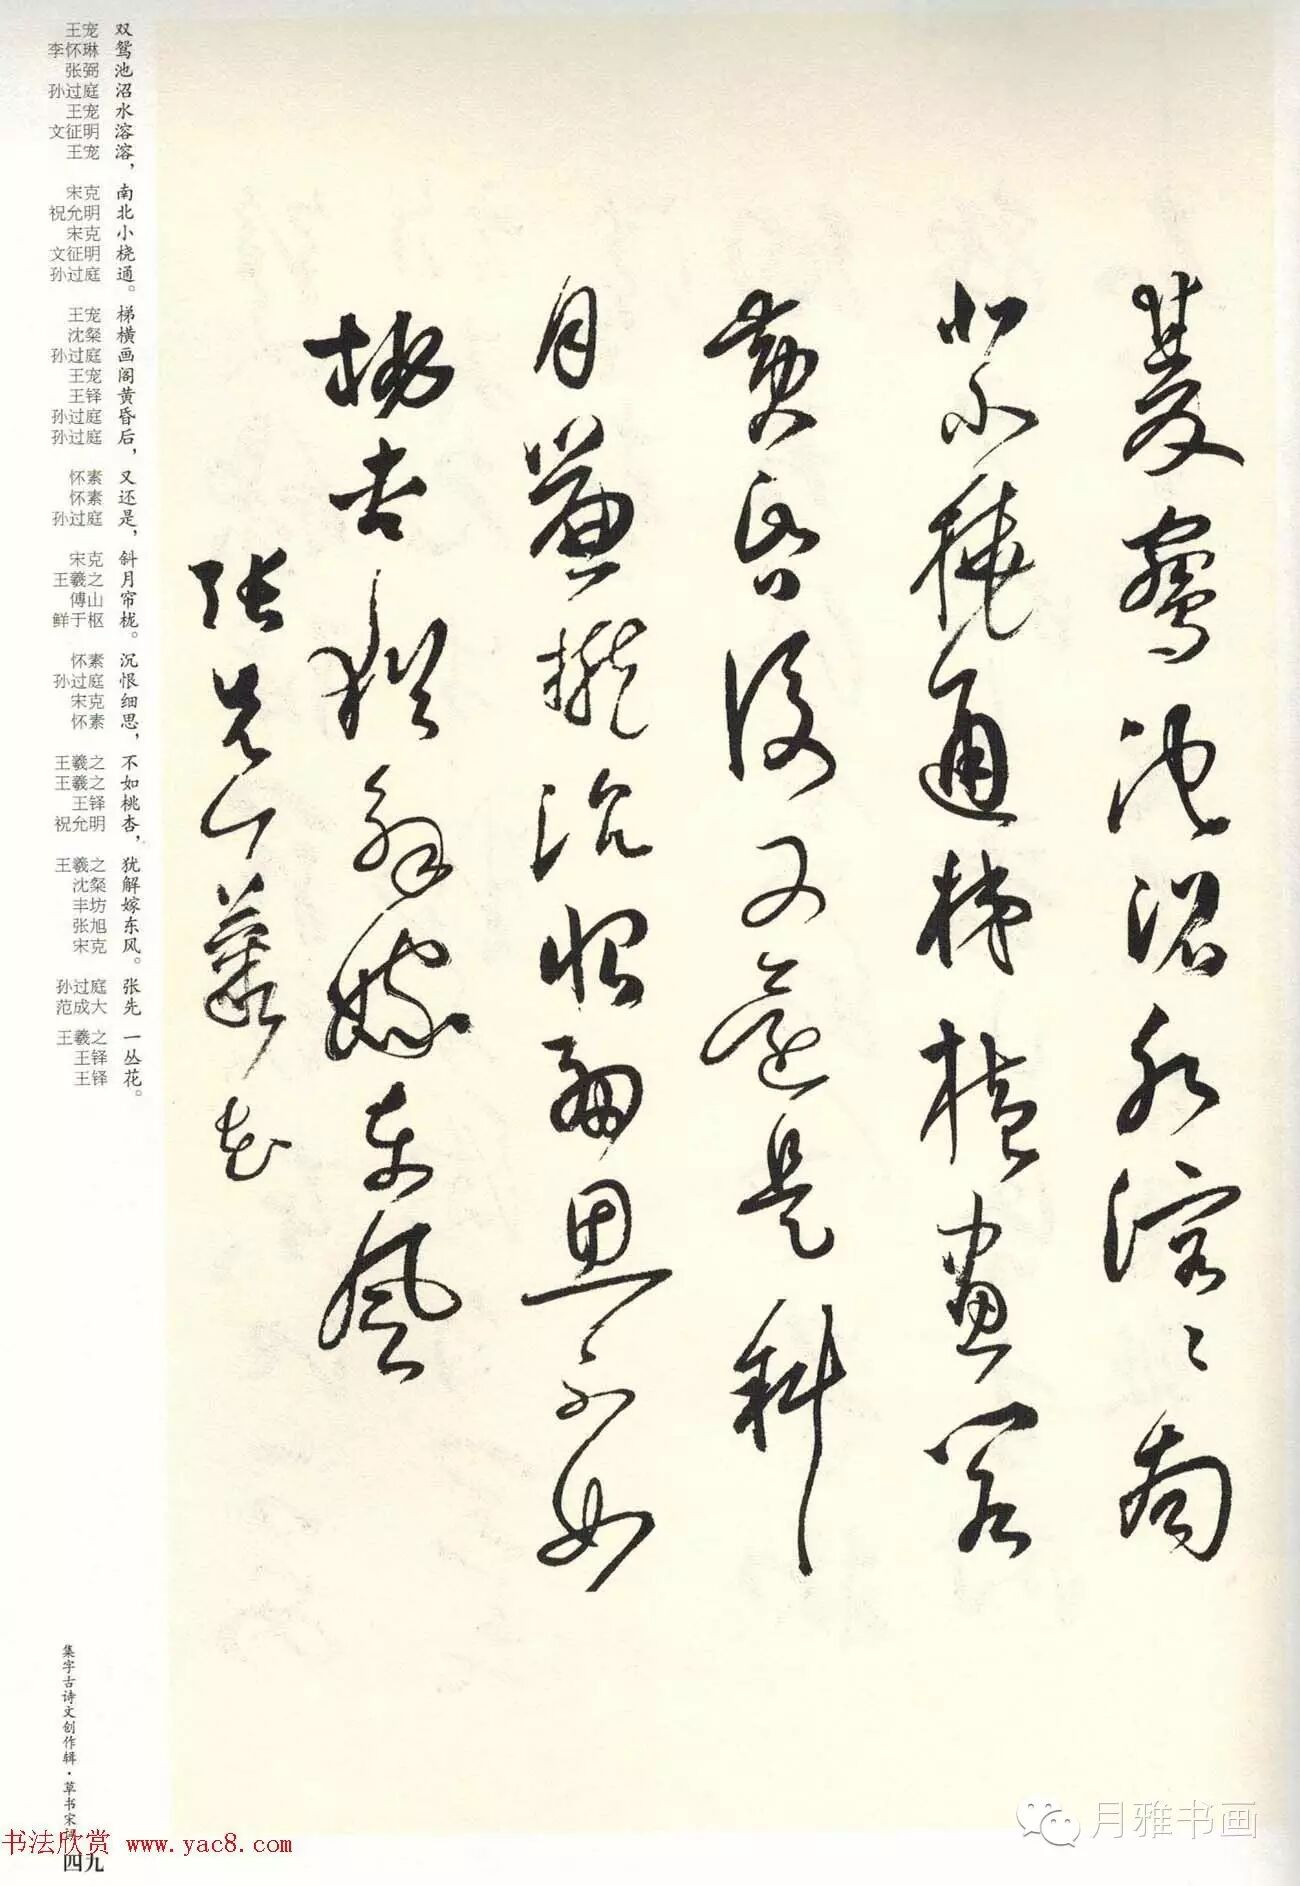 雙鴛池沼水溶溶南
北小橈通梯橫畫閣
黃昏後又還是斜
月簾櫳沉恨細思不如
桃杏猶解嫁東風
張先一叢花
王宠 双
李怀琳 鸳
张弼 池
孙过庭 沼
王宠 水
文征明 溶
王宠 溶，
宋克 南
祝允明 北
宋克 小
文征明 桡
孙过庭 通。
王宠 梯
沈粲 横
孙过庭 画
王宠 阁
王铎 黄
孙过庭 昏
孙过庭 后，
怀素 又
怀素 还
孙过庭 是，
宋克 斜
王羲之 月
傅山 帘
鲜于枢 栊。
怀素 沉
孙过庭 恨
宋克 细
怀素 思，
王羲之 不
王羲之 如
王铎 桃
祝允明 杏，
王羲之 犹
沈粲 解
丰坊 嫁
张旭 东
宋克 风。
孙过庭 张
范成大 先
王羲之 一
王铎 丛
王铎 花。
集字古诗文创作辑·草书宋词
书法欣赏 www.yac8.com
四九
月雅书画